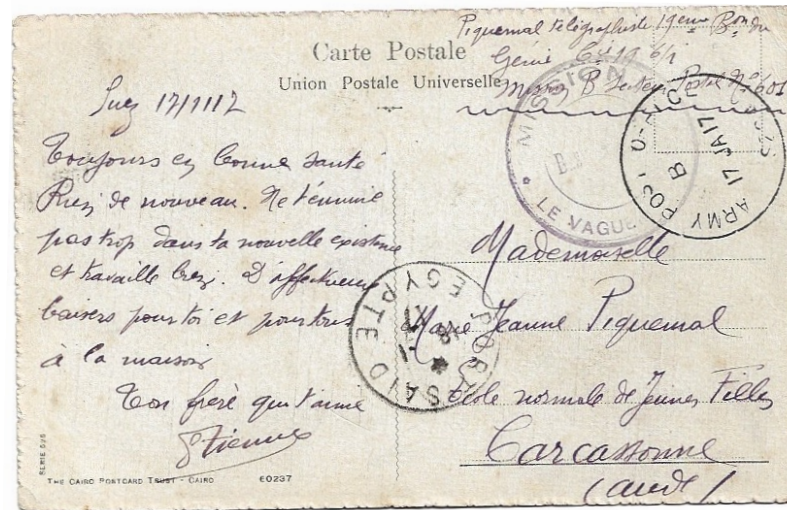 Piquemal télégraphiste 19eme Bon du
Génie Cie 19 6/1
Mission B Secteur Postal No 601
Carte Postale
Union Postale Universelle
Suez 17/1/17
Toujours en bonne santé
Rien de nouveau. Ne t'ennuie
pas trop dans ta nouvelle existence
et travaille bien. D'affectueux
baisers pour toi et pour tous
à la maison
Ton frère qui t'aime
Etienne
MISSION
LE VAGUE
ARMY POST OFFICE
B
17 JA 17
PORT SAID
EGYPTE
Mademoiselle
Marie Jeanne Piquemal
Ecole normale de Jeunes Filles
Carcassonne
(Aude)
SERIE 626
THE CAIRO POSTCARD TRUST - CAIRO
60237